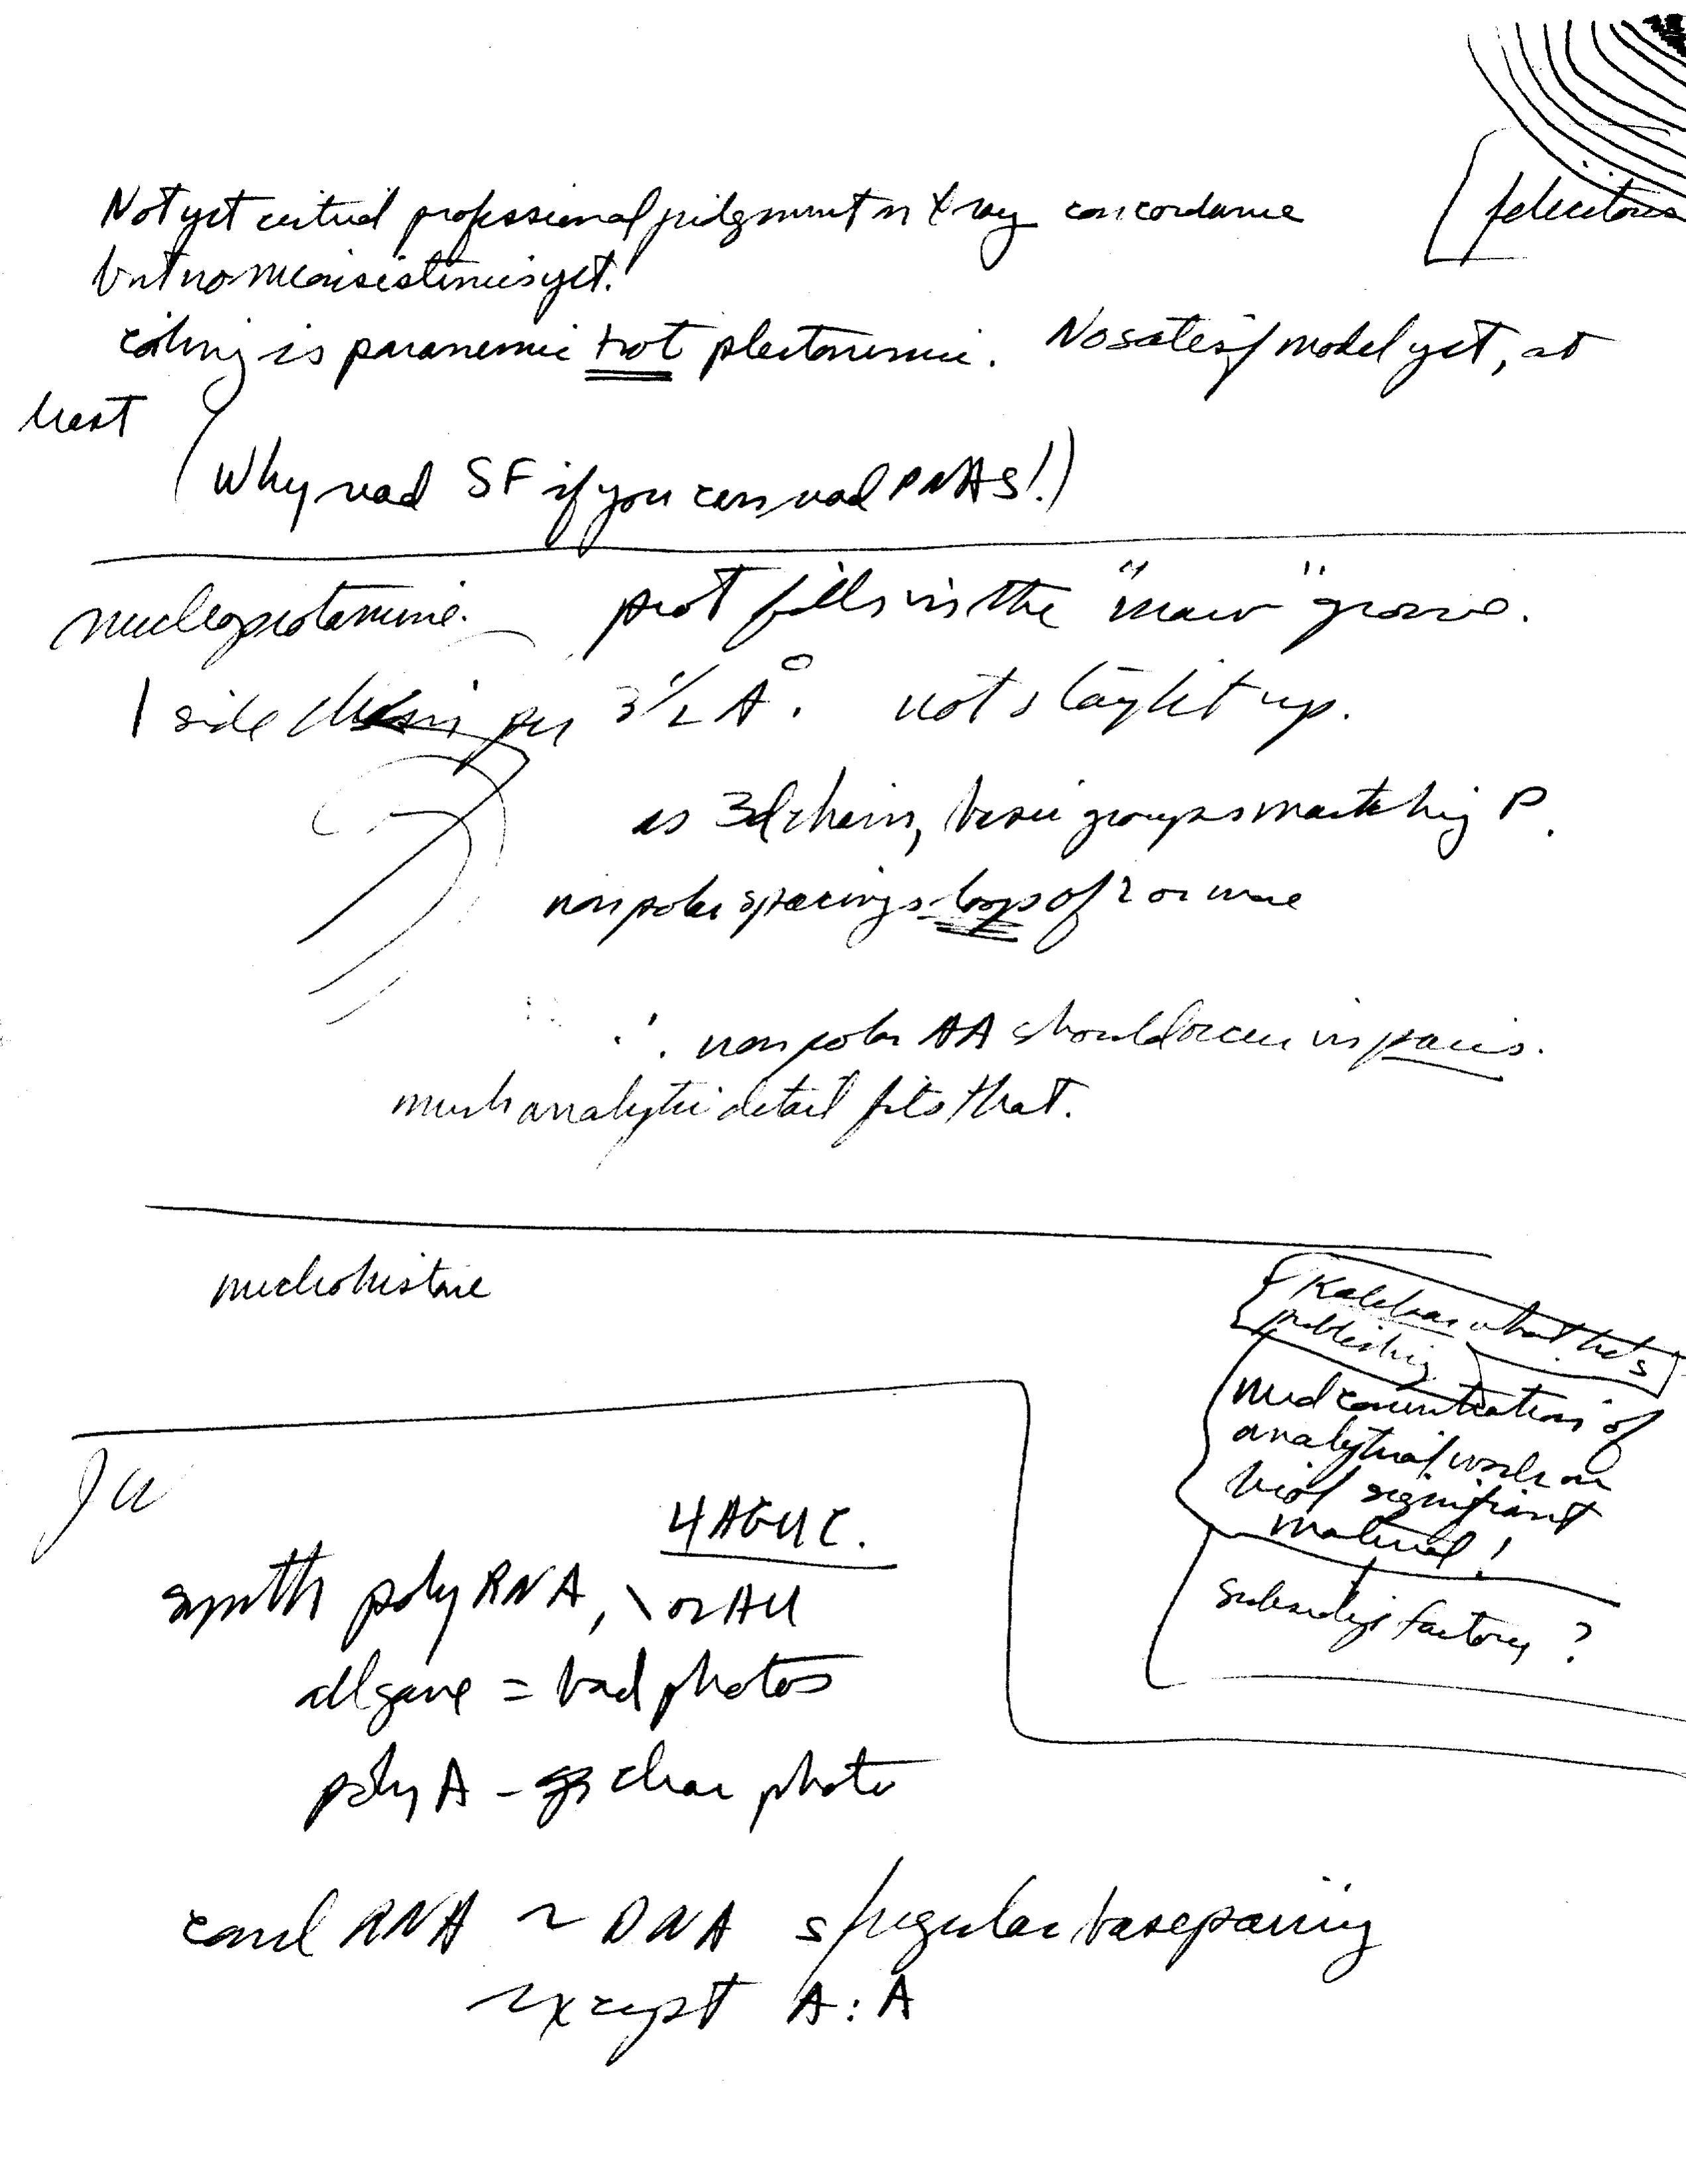 [felicitous
Not yet critical professional judgment on X ray concordance
but no inconsistencies yet.
coiling is paranemic not plectonemic. No satisf model yet, at
least
(Why read SF if you can read PNAS!)
nucleoprotamine. prot fills in the "maior" groove.
1 side chain per 3 1/2 Å. not straight up.
as 3d chain, basic groups matching P.
nonpolar spacings loops of 2 or more
∴ nonpolar AA should occur in pairs.
much analytic detail fits that.
nucleohistone
what he's
publishing
need concentration of
analytical work on
biol significant
material!
subsidize factory?
4 AGUC.
synth poly RNA, \ or AU
all gave = bad photos
poly A - clear photo
concl RNA ~ DNA s/regular basepairing
except A:A